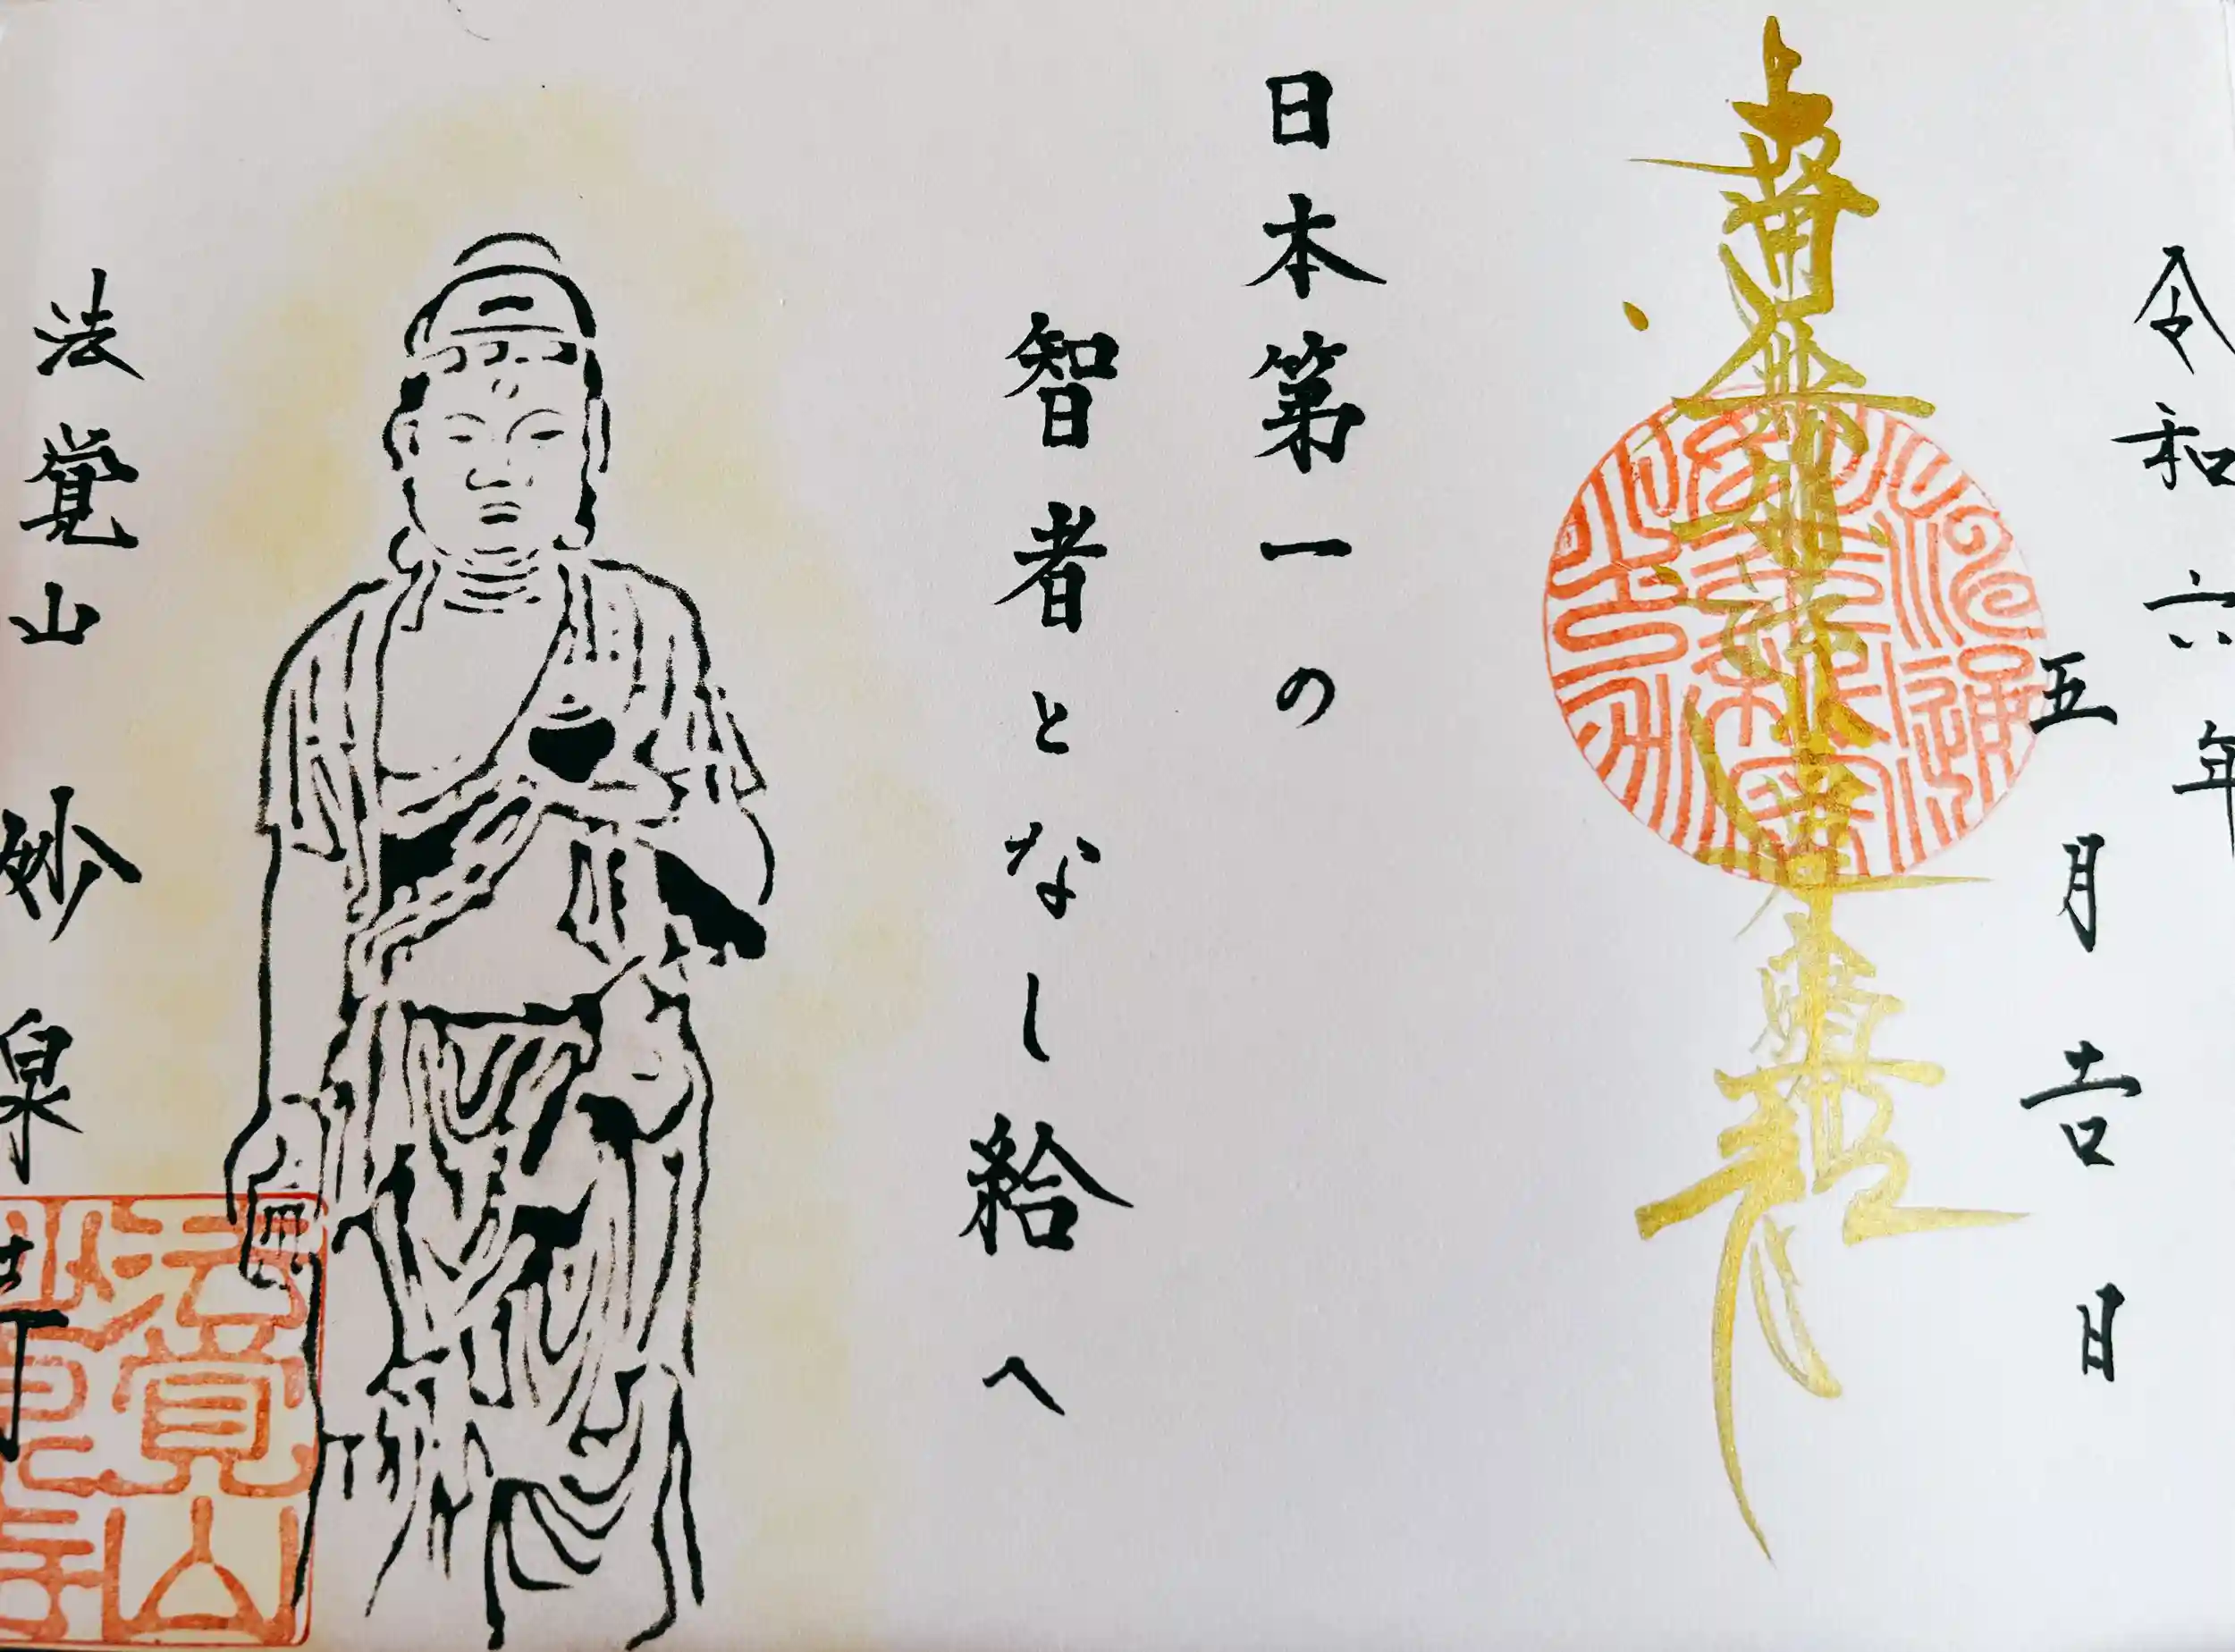 令和六年
五月吉日
南無妙法蓮華経
日本第一の
智者となし給へ
法覚山 妙泉寺
法覚山